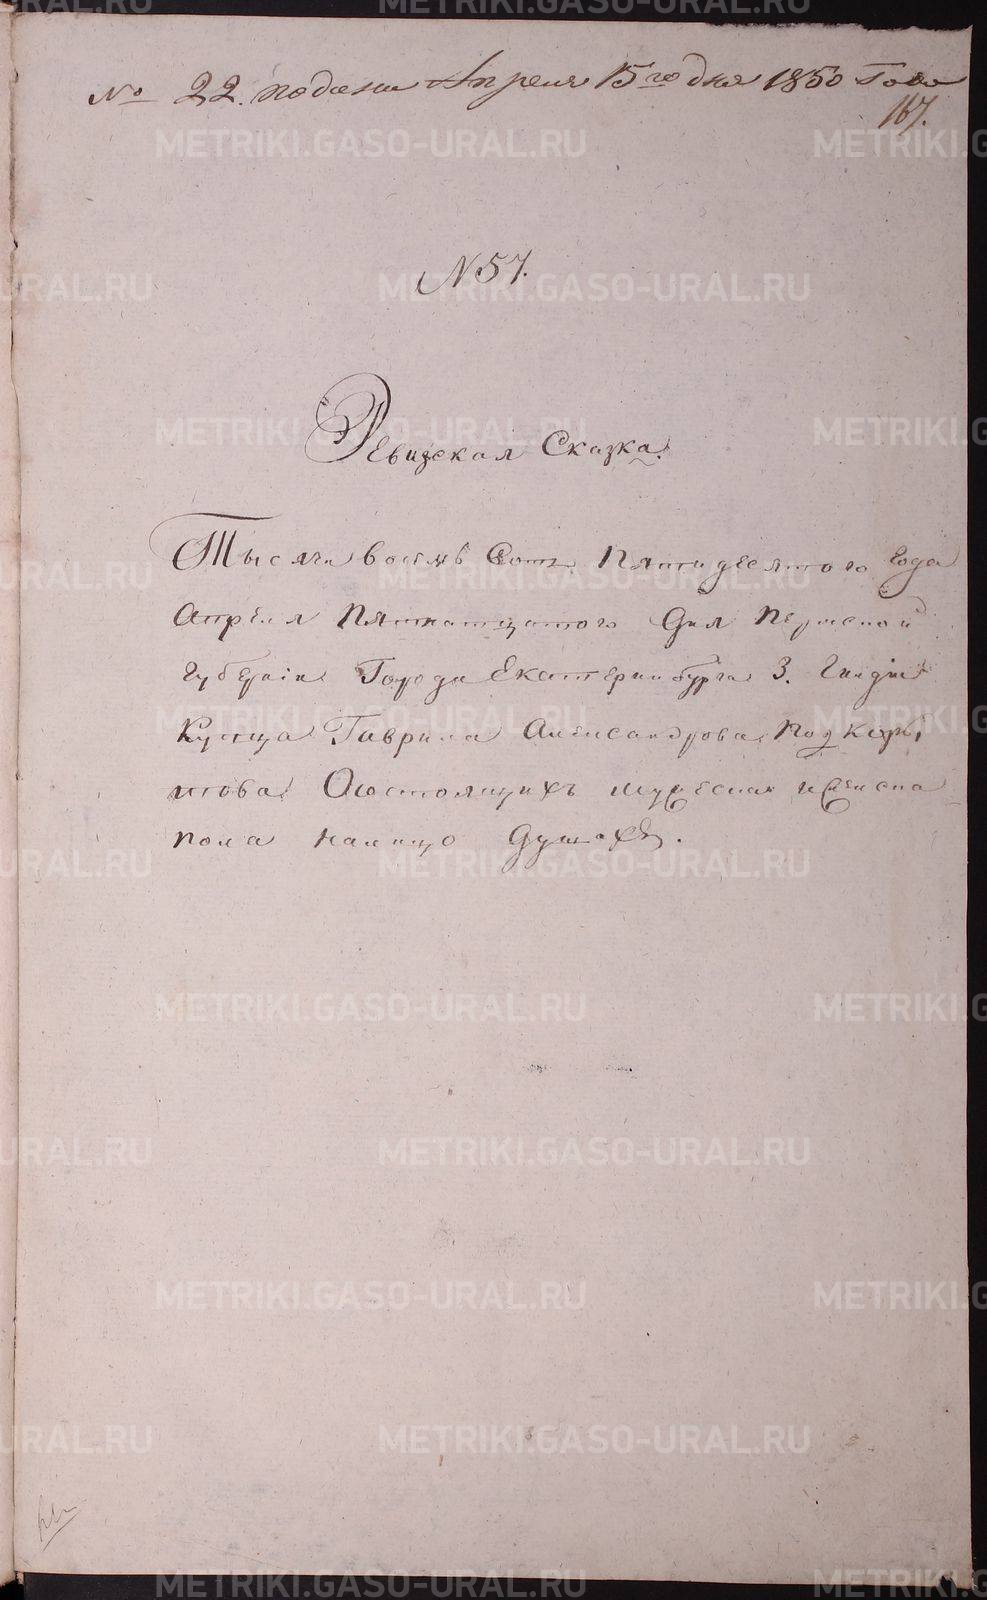 № 22. подана Апреля 15го дня 1850 Года
167.
N 57.
Ревизская Сказка.
Тысяча восемь Сотъ Пятидесятого года
Апреля Пятнатцатого Дня Пермской
Губерніи Города Екатеринбурга 3. Гилдіи
Купца Гаврила Александрова Подкоры
това Осостоящихъ мужеска иженска
пола налицо Душахъ.